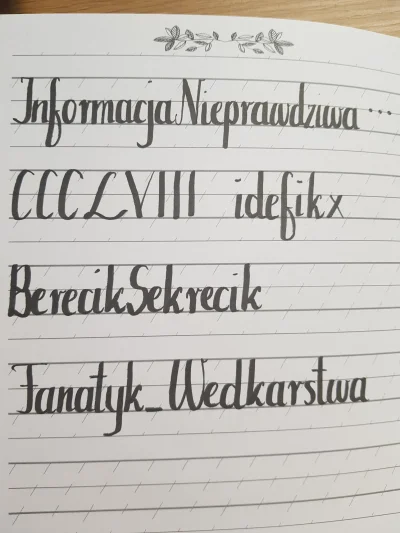 InformacjaNieprawdziwa...
CCCLVIII idefikx
BerecikSekrecik
Fanatyk_Wedkarstwa